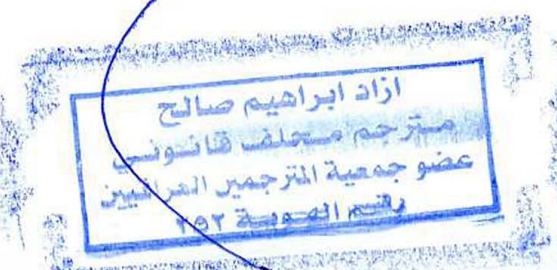 ازاد ابراهيم صالح
مترجم محلف قانوني
عضو جمعية المترجمين العراقيين
رقم الهوية ٢٥٢